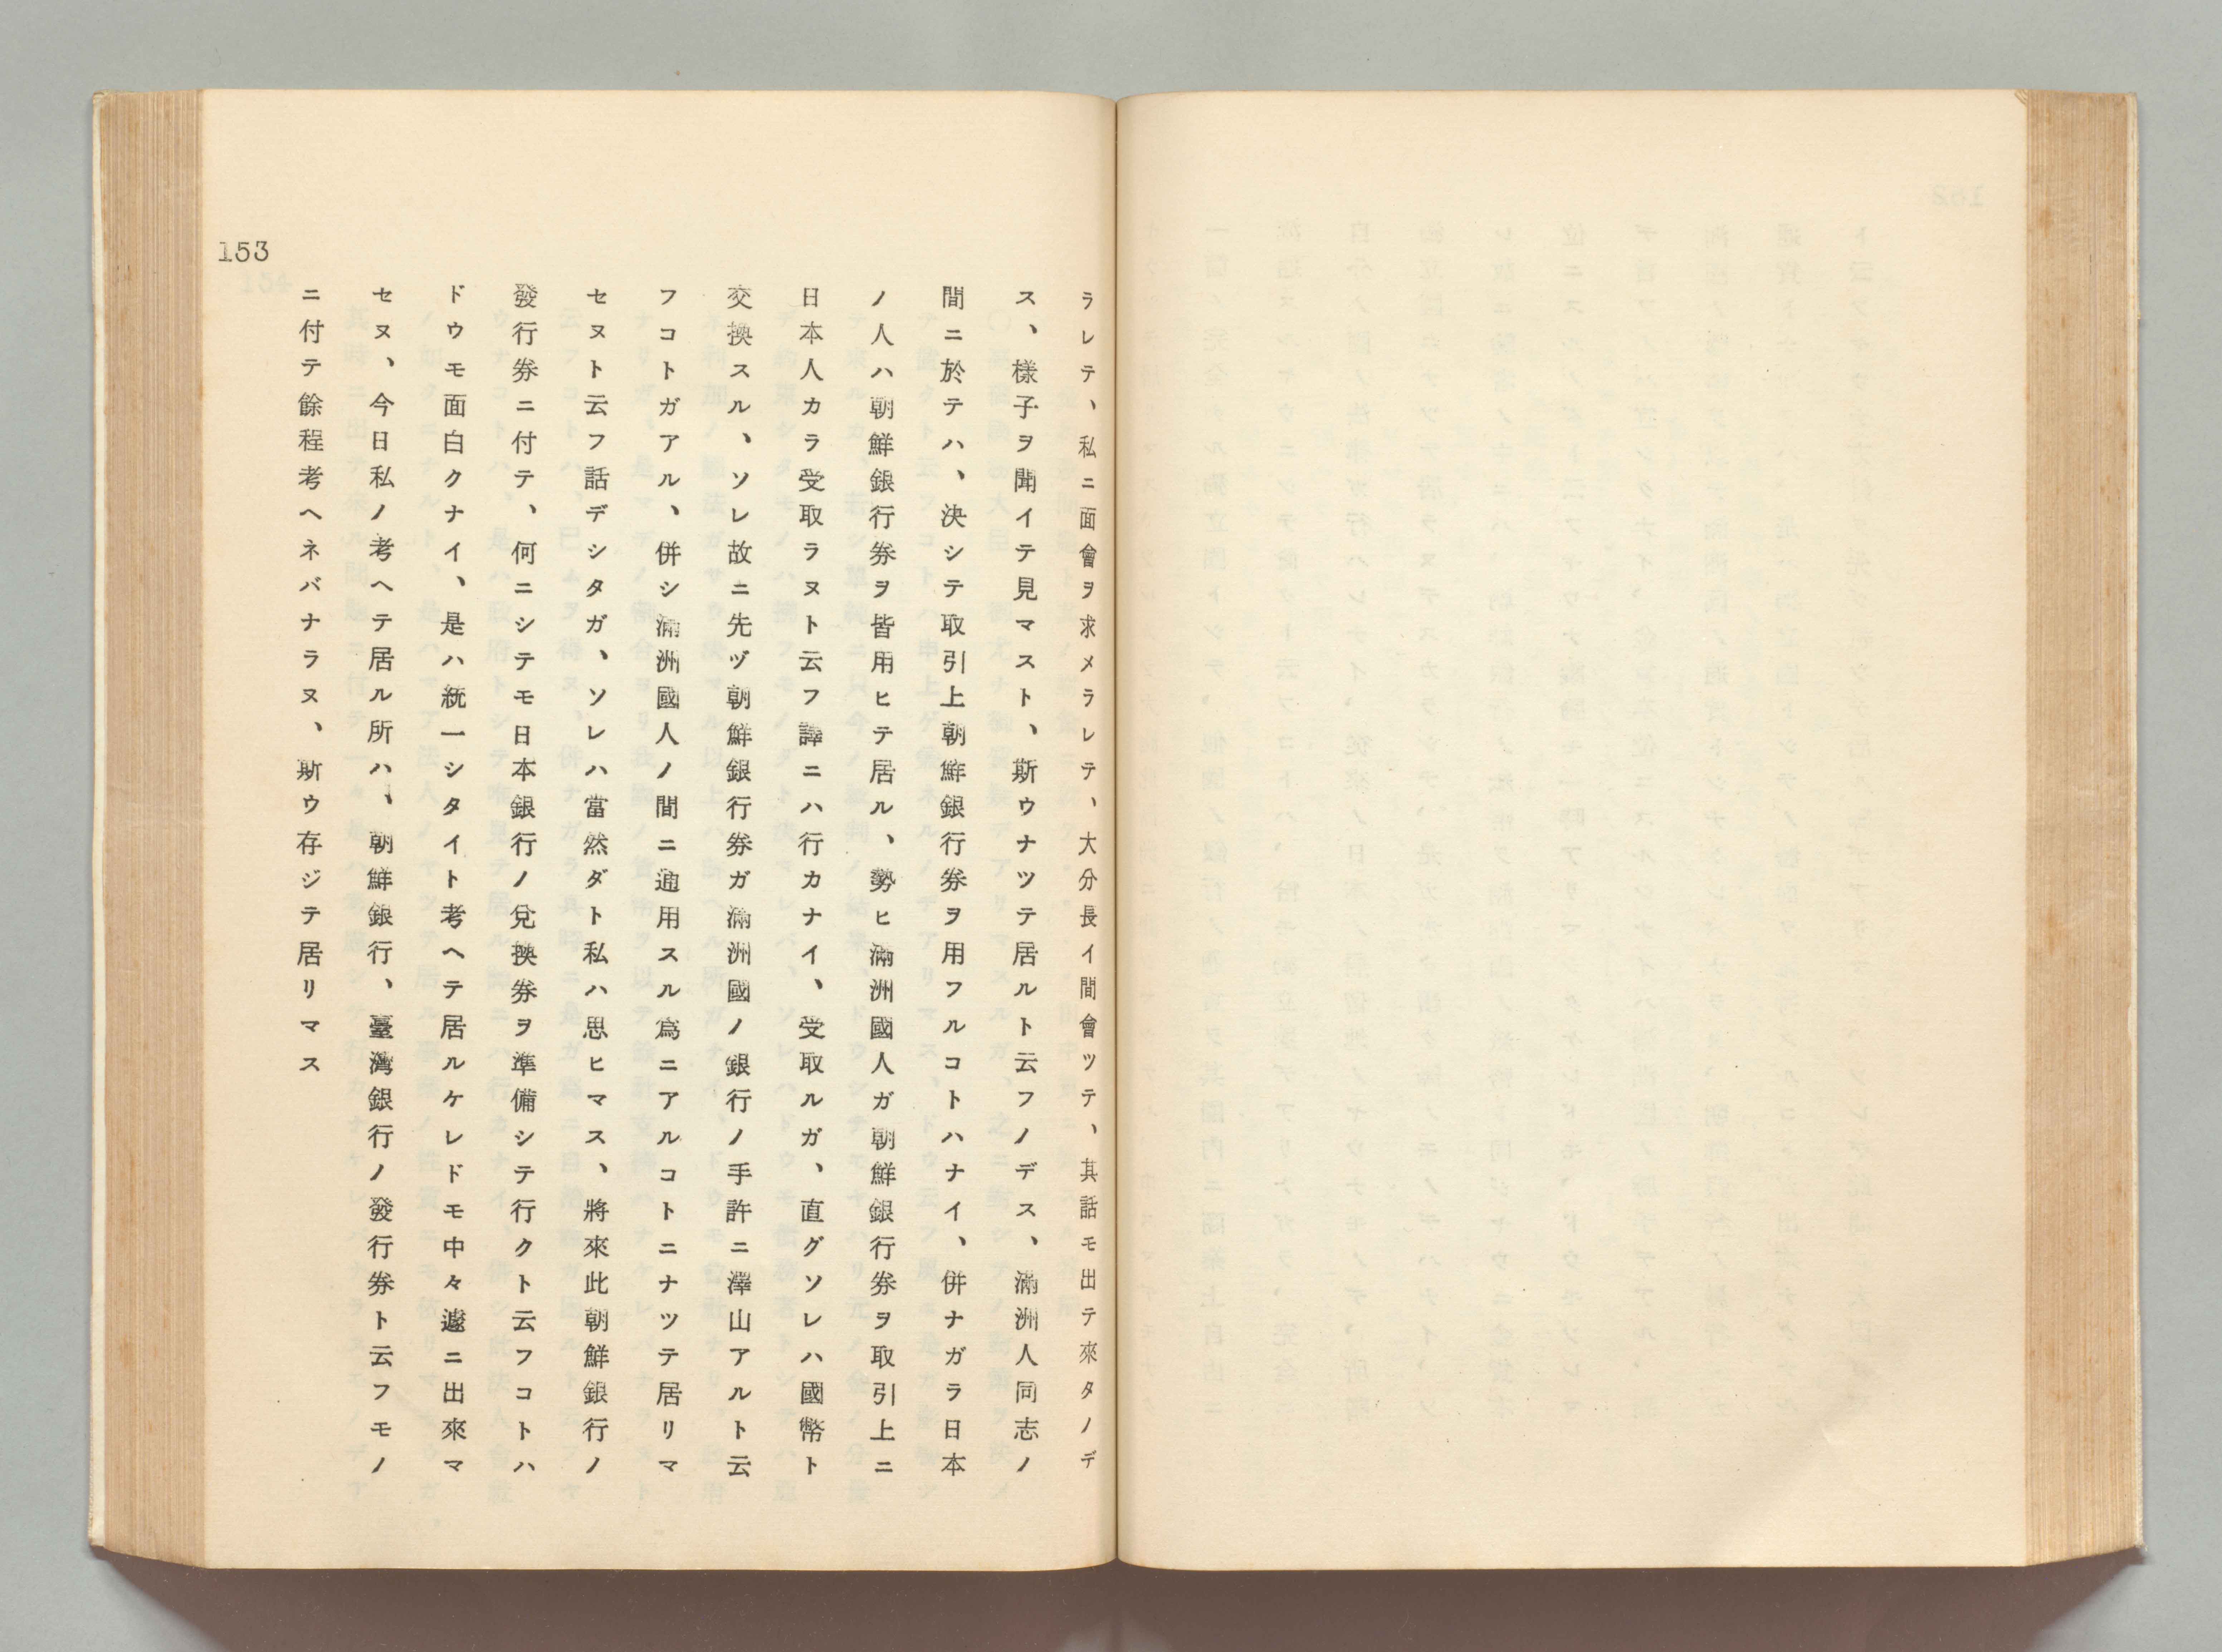 153
ラレテ、私ニ面會ヲ求メラレテ、大分長イ間會ツテ、其話モ出テ來タノデ
ス、樣子ヲ聞イテ見マスト、斯ウナツテ居ルト云フノデス、滿洲人同志ノ
間ニ於テハ、決シテ取引上朝鮮銀行券ヲ用フルコトハナイ、併ナガラ日本
ノ人ハ朝鮮銀行券ヲ皆用ヒテ居ル、勢ヒ滿洲國人ガ朝鮮銀行券ヲ取引上ニ
日本人カラ受取ラヌト云フ譯ニハ行カナイ、受取ルガ、直グソレハ國幣ト
交換スル、ソレ故ニ先ヅ朝鮮銀行券ガ滿洲國ノ銀行ノ手許ニ澤山アルト云
フコトガアル、併シ滿洲國人ノ間ニ通用スル爲ニアルコトニナツテ居リマ
セヌト云フ話デシタガ、ソレハ當然ダト私ハ思ヒマス、將來此朝鮮銀行ノ
發行券ニ付テ、何ニシテモ日本銀行ノ兌換券ヲ準備シテ行クト云フコトハ
ドウモ面白クナイ、是ハ統一シタイト考ヘテ居ルケレドモ中々遽ニ出來マ
セヌ、今日私ノ考ヘテ居ル所ハ、朝鮮銀行、臺灣銀行ノ發行券ト云フモノ
ニ付テ餘程考ヘネバナラヌ、斯ウ存ジテ居リマス